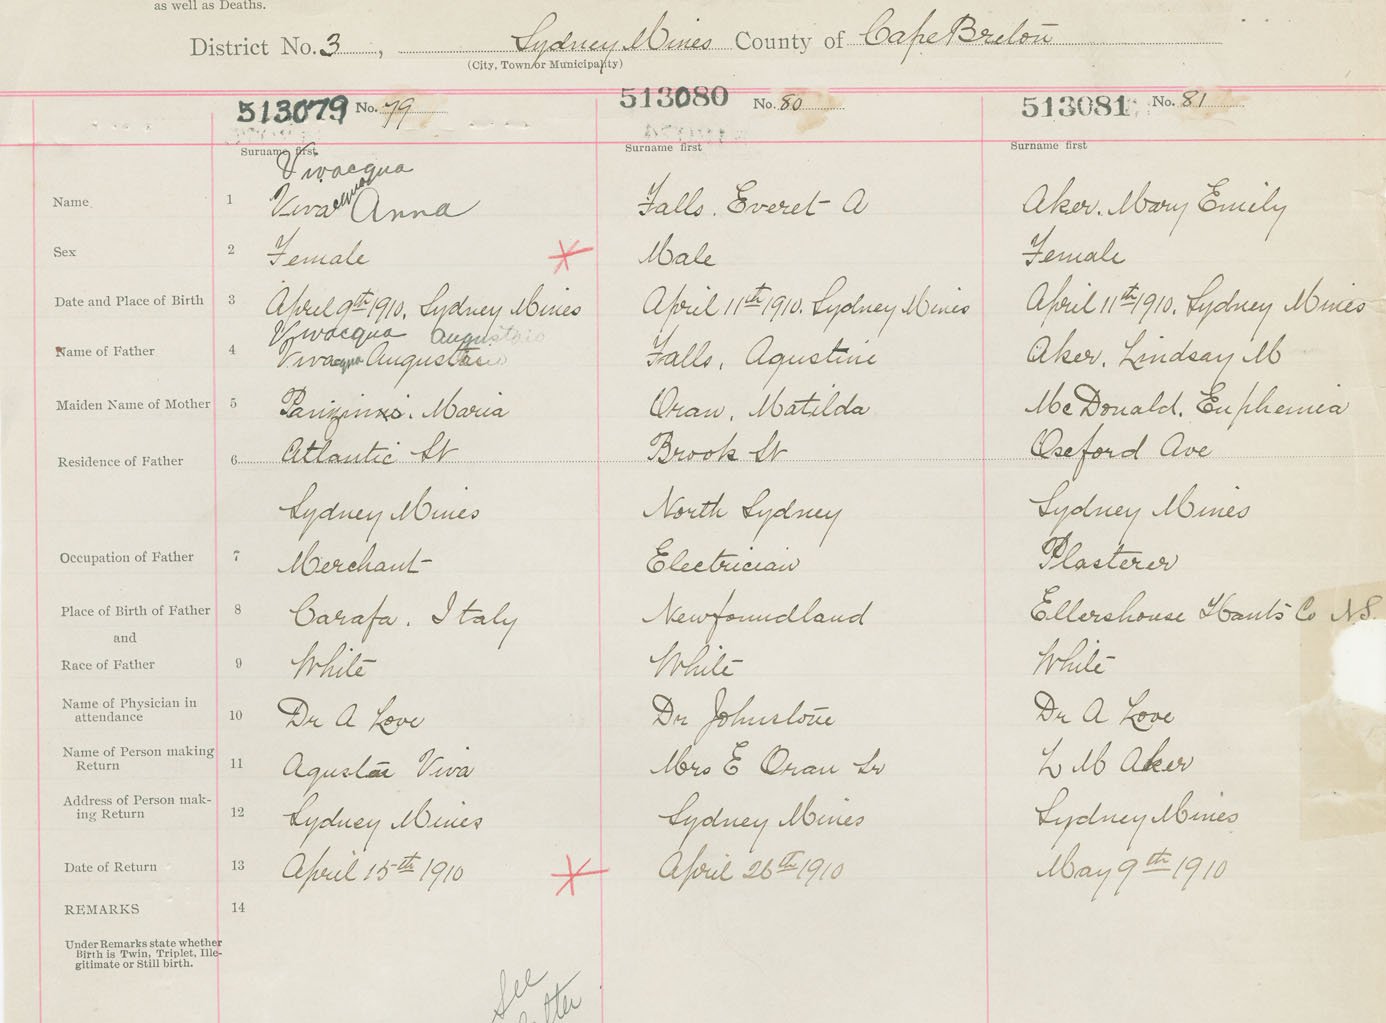 as well as Deaths.
District No. 3, Sydney Mines County of Cape Breton
(City, Town or Municipality)
513079 No. 79 513080 No. 80 513081 No. 81
Surname first Surname first Surname first
Vivacqua
Name. 1 Viva Anna Falls. Everet A Aker. Mary Emily
Sex 2 Female Male Female
Date and Place of Birth 3 April 9th 1910. Sydney Mines April 11th 1910. Sydney Mines April 11th 1910. Sydney Mines
Vivacqua
Name of Father 4 Viva Falls, Agustine Aker. Lindsay M
Maiden Name of Mother 5 Maria Oran, Matilda McDonald, Euphemia
Residence of Father 6 Atlantic St Brook St Oxeford Ave
Sydney Mines North Sydney Sydney Mines
Occupation of Father 7 Merchant Electrician Plasterer
Place of Birth of Father 8 Carafa. Italy Newfoundland Ellershouse Hants Co N.S.
and
Race of Father 9 White White White
Name of Physician in
attendance 10 Dr A Love Dr Johnstone Dr A Love
Name of Person making
Return 11 Viva Mrs E Oran Sr L M Aker
Address of Person mak-
ing Return 12 Sydney Mines Sydney Mines Sydney Mines
Date of Return 13 April 15th 1910 April 26th 1910 May 9th 1910
REMARKS 14
Under Remarks state whether
Birth is Twin, Triplet, Ille-
gitimate or Still birth.
See